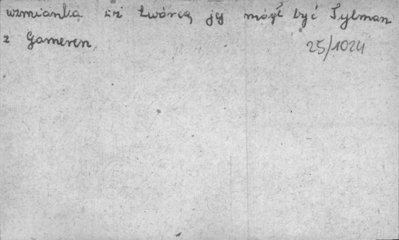 wzmianka iż twórcą jej mógł być Tylman
z Gameren.
25/1024